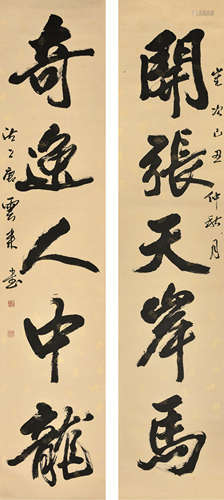 開張天岸馬
歲次己丑仲秋月
奇逸人中龍
雲來書